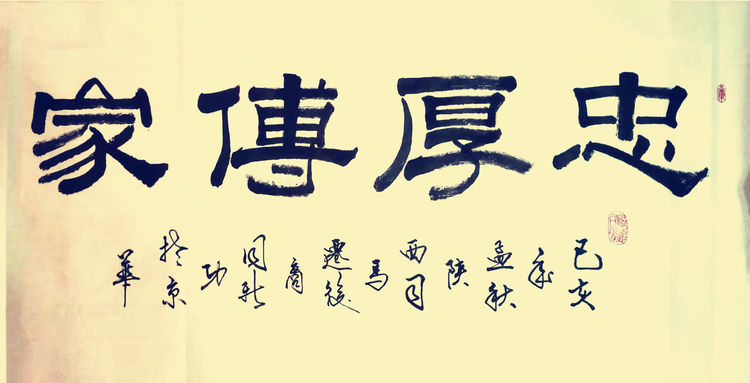 忠厚傳家
己亥年孟秋陝西司馬遷後裔同功於京華